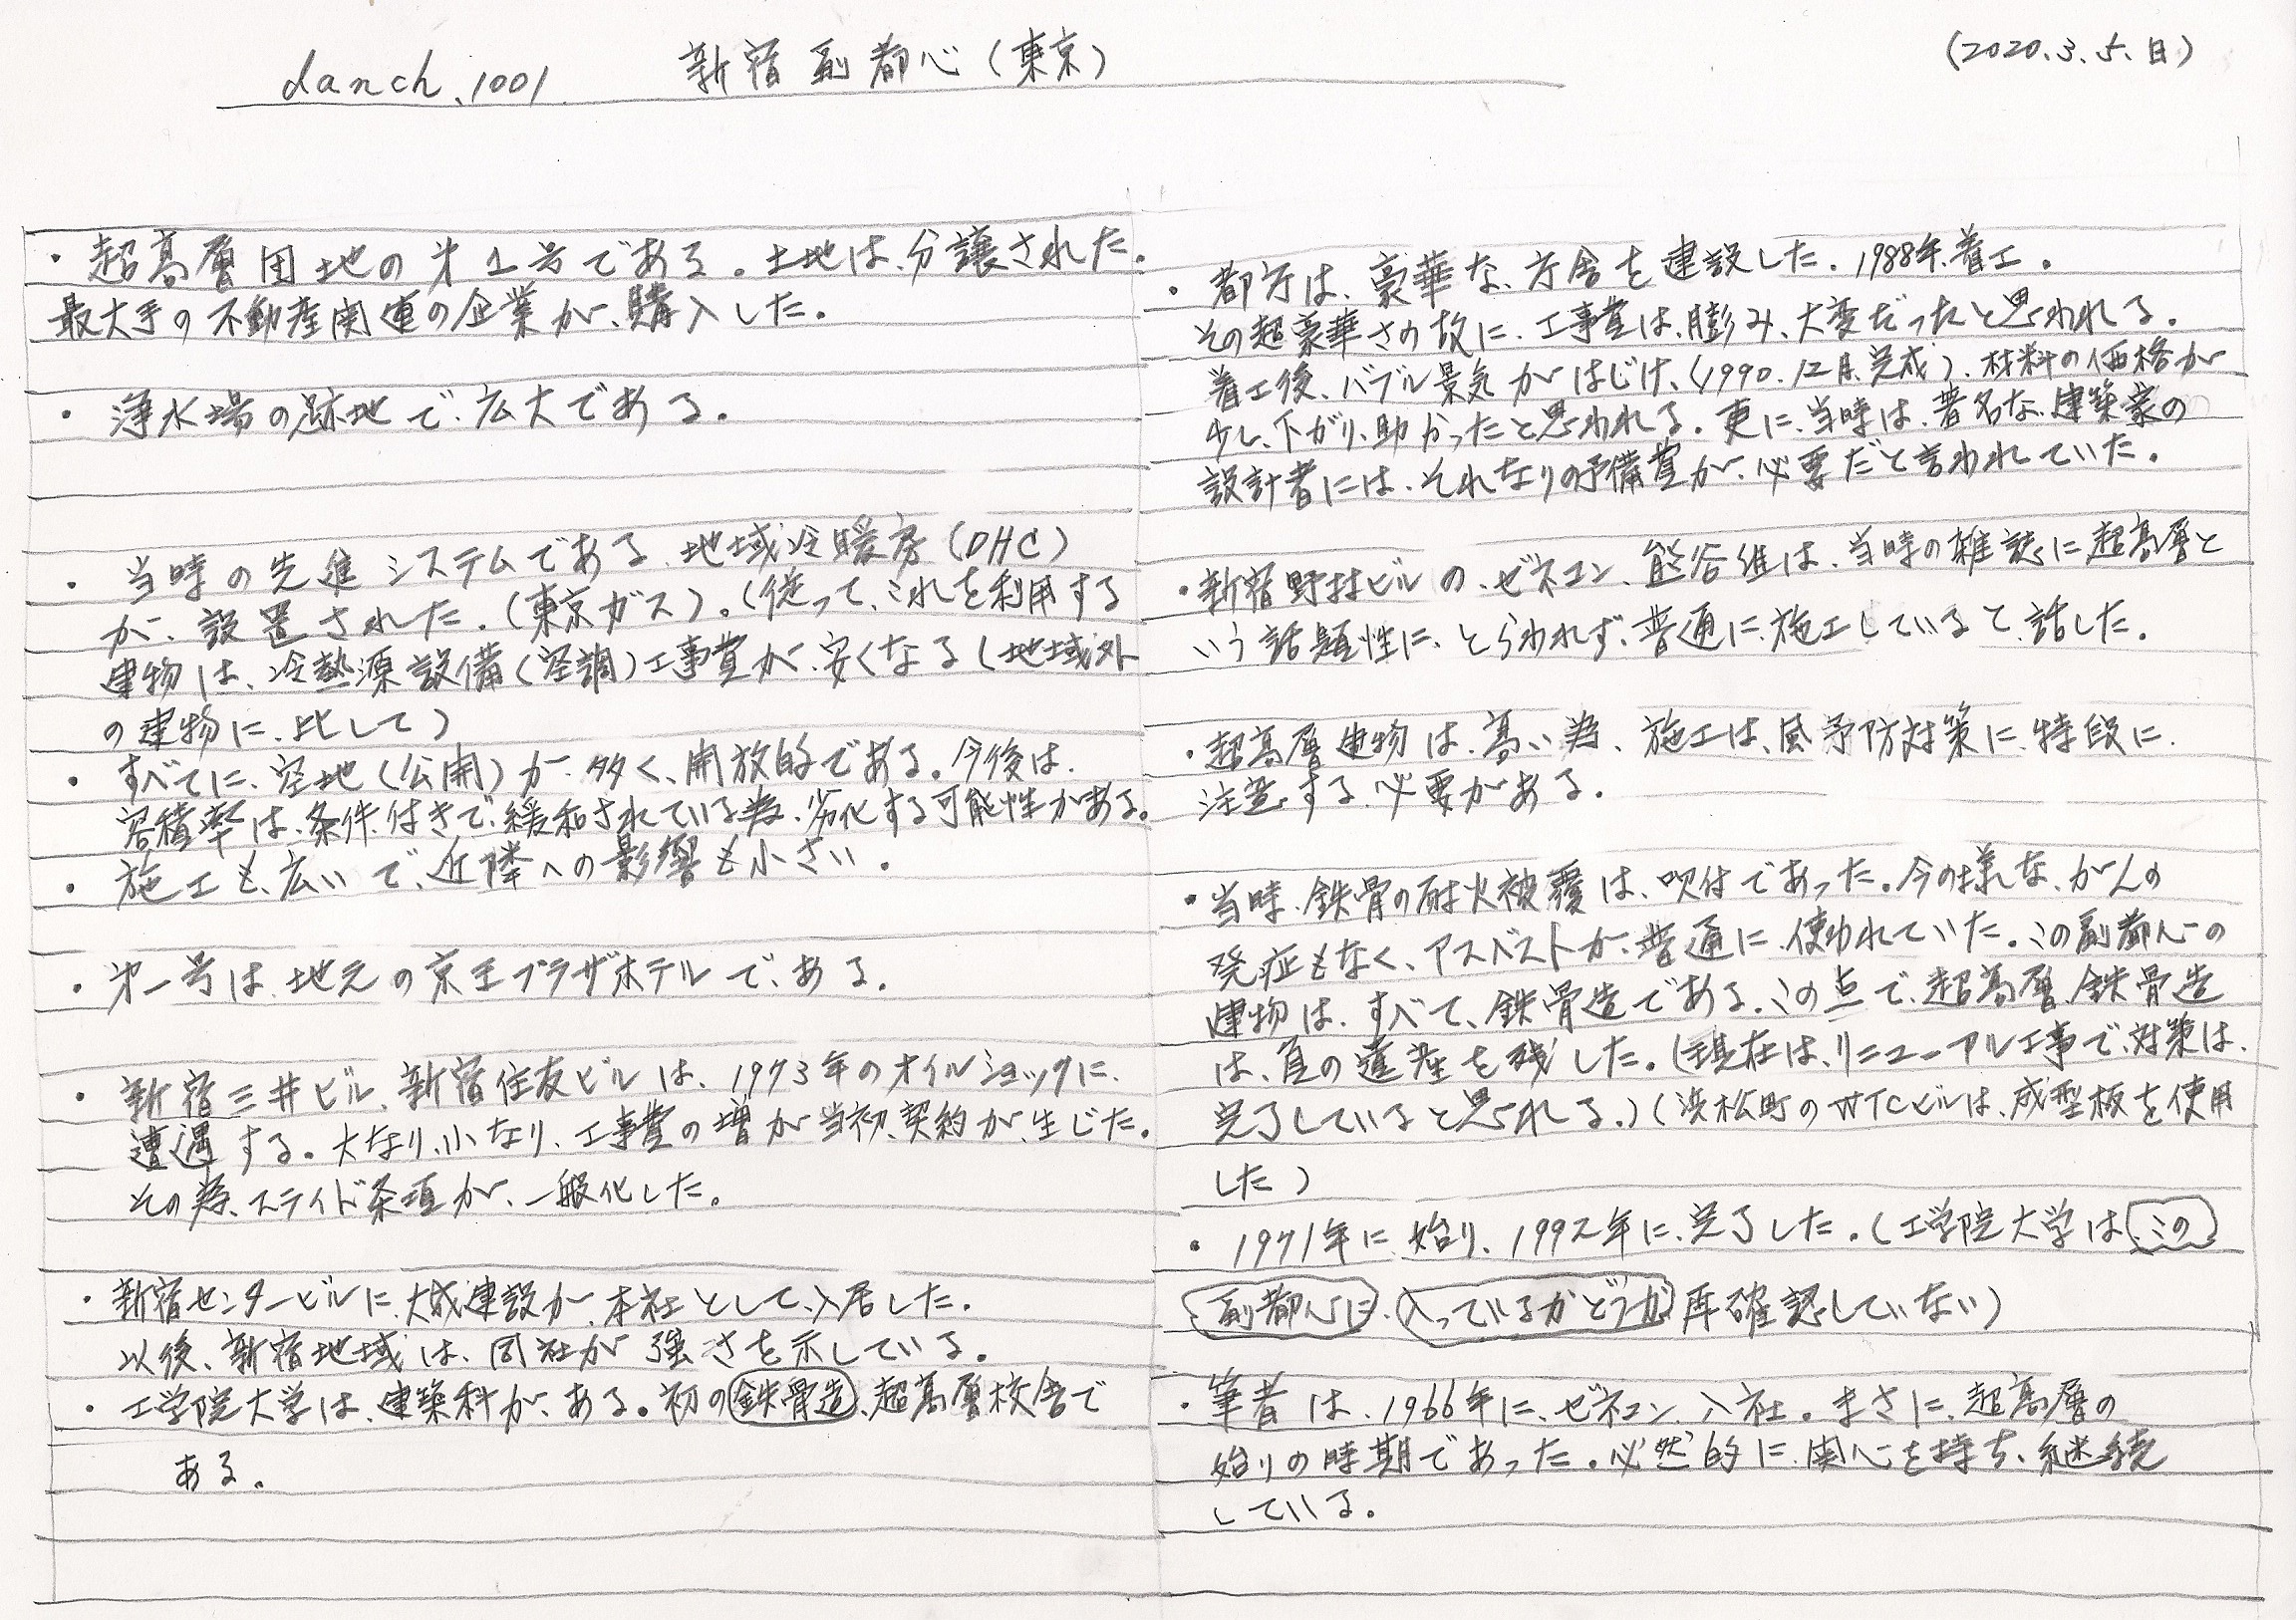 danch.1001. 新宿副都心(東京)
(2020.3.5.日)
・超高層団地の第1号である。土地は、分譲された。
最大手の不動産関連の企業が、購入した。
・浄水場の跡地で、広大である。
・当時の先進システムである、地域冷暖房(DHC)
が、設置された。(東京ガス)。(従って、これを利用する
建物は、冷熱源設備(空調)工事費が、安くなる(地域外
の建物に、比して)
・すべてに、空地(公開)が、多く、開放的である。今後は、
容積率は、条件付きで、緩和されている為、劣化する可能性がある。
・施工も、広いで、近隣への影響も小さい。
・第一号は、地元の京王プラザホテルで、ある。
・新宿三井ビル、新宿住友ビルは、1973年のオイルショックに、
遭遇する。大なり、小なり、工事費の増が当初、契約が、生じた。
その為、スライド条項が、一般化した。
・新宿センタービルに、大成建設が、本社として、入居した。
以後、新宿地域は、同社が強さを示している。
・工学院大学は、建築科が、ある。初の鉄骨造、超高層校舎で
ある。
・都庁は、豪華な、庁舎を建設した。1988年、着工。
その超豪華さの故に、工事費は、膨み、大変だったと思われる。
着工後、バブル景気がはじけ、(1990.12月、完成)、材料の価格が
少し、下がり、助かったと思われる。更に、当時は、著名な、建築家の
設計者には、それなりの予備費が、必要だと言われていた。
・新宿野村ビルの、ゼネコン、熊谷組は、当時の雑誌に超高層と
いう話題性に、とらわれず、普通に、施工していると、話した。
・超高層建物は、高い為、施工は、風予防対策に、特段に、
注意する、必要がある。
・当時、鉄骨の耐火被覆は、吹付であった。今の様な、がんの
発症もなく、アスベストが、普通に、使われていた。この副都心の
建物は、すべて、鉄骨造である。この点で、超高層、鉄骨造
は、負の遺産を残した。(現在は、リニューアル工事で、対策は、
完了していると思われる。)(浜松町のWTCビルは、成型板を使用
した)
・1971年に、始り、1992年に、完了した。(工学院大学は この
副都心に、入っているかどうか 再確認していない)
・筆者は、1966年に、ゼネコン、入社。まさに、超高層の
始りの時期であった。必然的に、関心を持ち、継続
している。